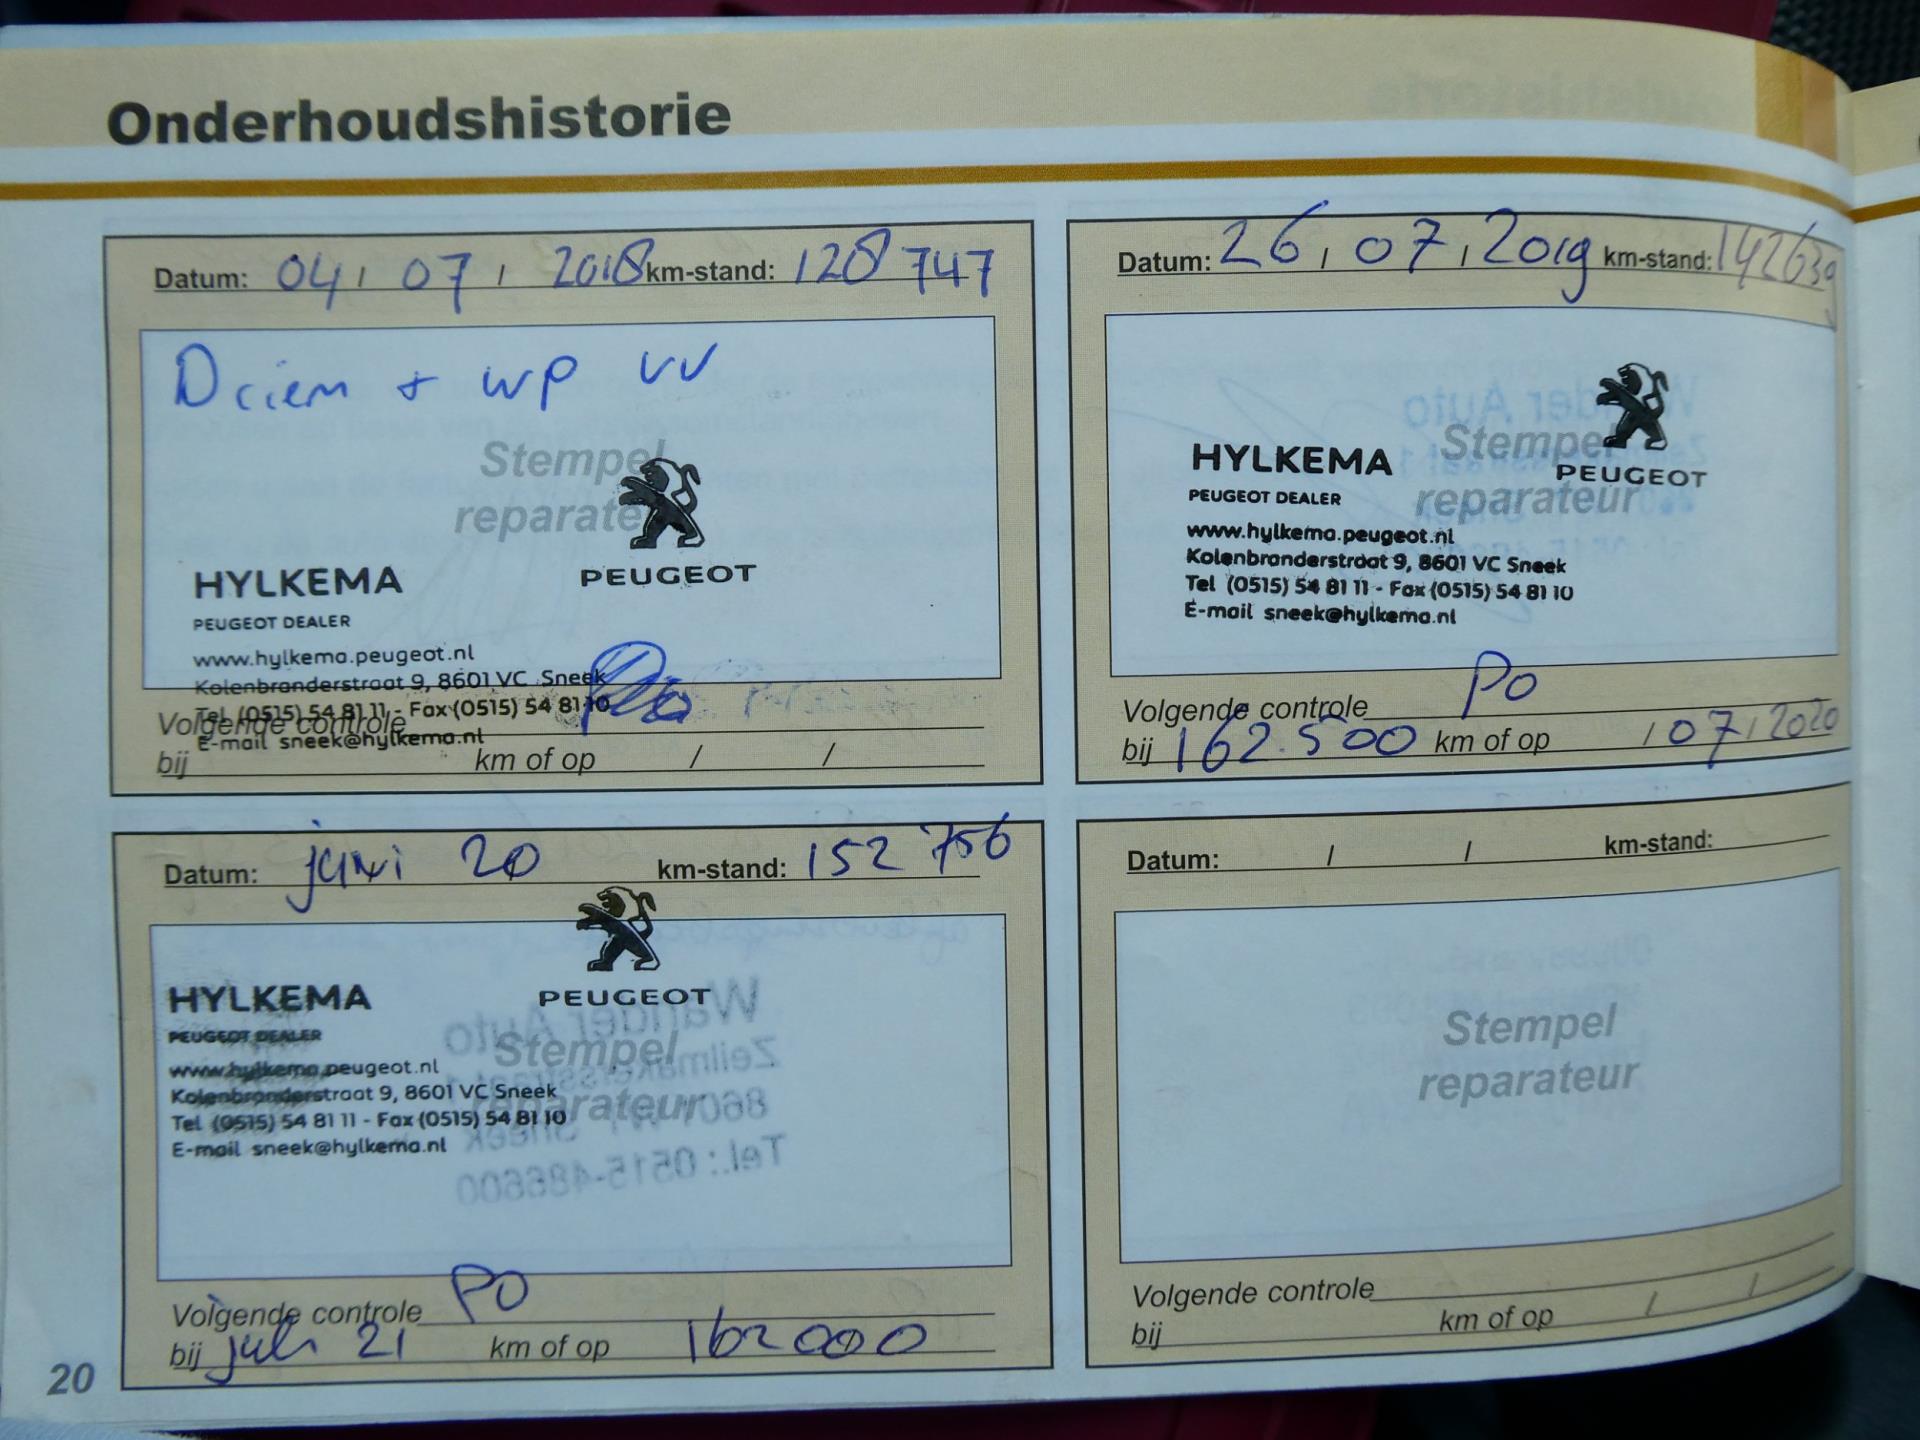 Onderhoudshistorie
Datum: 04 / 07 / 2018 km-stand: 128 747
Driem + WP VV
Stempel
reparateur
PEUGEOT
HYLKEMA
PEUGEOT DEALER
www.hylkema.peugeot.nl
Kolenbranderstraat 9, 8601 VC Sneek
Tel (0515) 54 81 11 - Fax (0515) 54 81 10
E-mail sneek@hylkema.nl
Volgende controle
bij km of op / /
Datum: 26 / 07 / 2019 km-stand: 142639
Stempel
reparateur
PEUGEOT
HYLKEMA
PEUGEOT DEALER
www.hylkema.peugeot.nl
Kolenbranderstraat 9, 8601 VC Sneek
Tel (0515) 54 81 11 - Fax (0515) 54 81 10
E-mail sneek@hylkema.nl
Volgende controle PO
bij 162.500 km of op / 07 / 2020
Datum: juni 20 km-stand: 152 756
PEUGEOT
HYLKEMA
PEUGEOT DEALER
Stempel
reparateur
www.hylkema.peugeot.nl
Kolenbranderstraat 9, 8601 VC Sneek
Tel (0515) 54 81 11 - Fax (0515) 54 81 10
E-mail sneek@hylkema.nl
Wander Auto
Tel.: 0515-486600
Volgende controle PO
bij juli 21 km of op 162000
Datum: / / km-stand:
Stempel
reparateur
Volgende controle
bij km of op / /
20